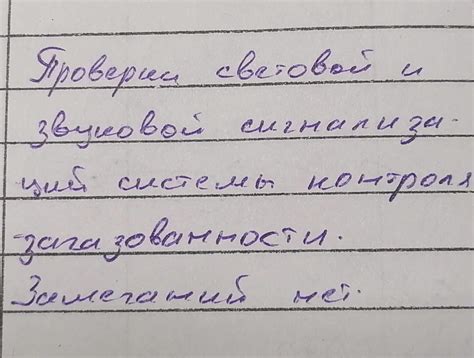 Проверки световой и
звуковой сигнализа-
ций системы контроля
загазованности.
Замечаний нет.